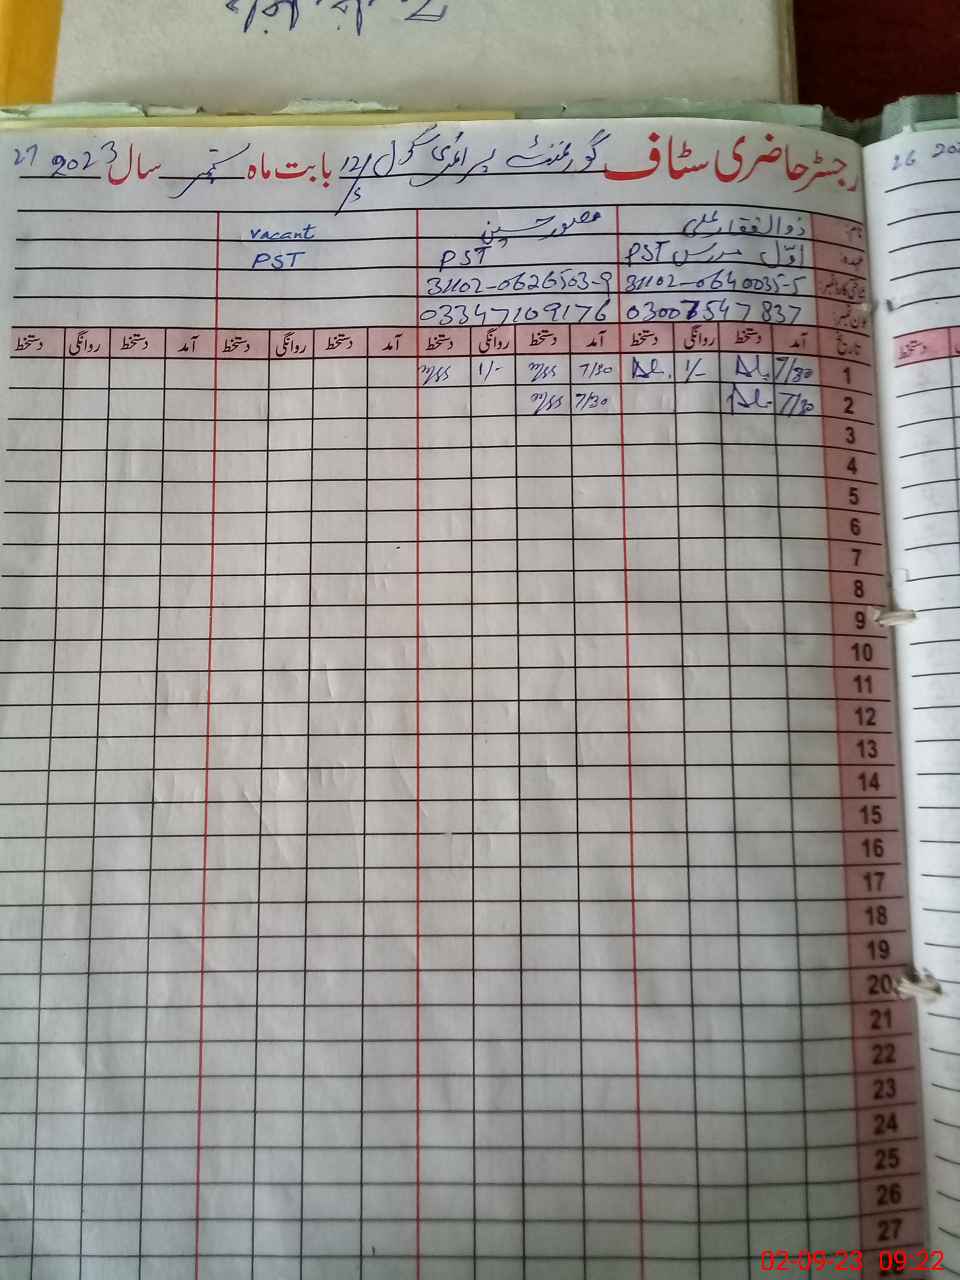 رجسٹر حاضری سٹاف گورنمنٹ پرائمری سکول 12/ بابت ماہ ستمبر سال 2023 27
26
نام: ذوالفقار علی منظور حسین vacant
عہدہ: اوّل مدرس PST PST PST
31102-0640035-5 31102-0626503-9
فون نمبر: 03006547837 03347109176
تاریخ آمد دستخط روانگی دستخط آمد دستخط روانگی دستخط آمد دستخط روانگی دستخط آمد دستخط روانگی دستخط
دستخط
1 7/30 1/- 7/30 1/-
2 7/30 7/30
3
4
5
6
7
8
9
10
11
12
13
14
15
16
17
18
19
20
21
22
23
24
25
26
27
02-09-23 09:22